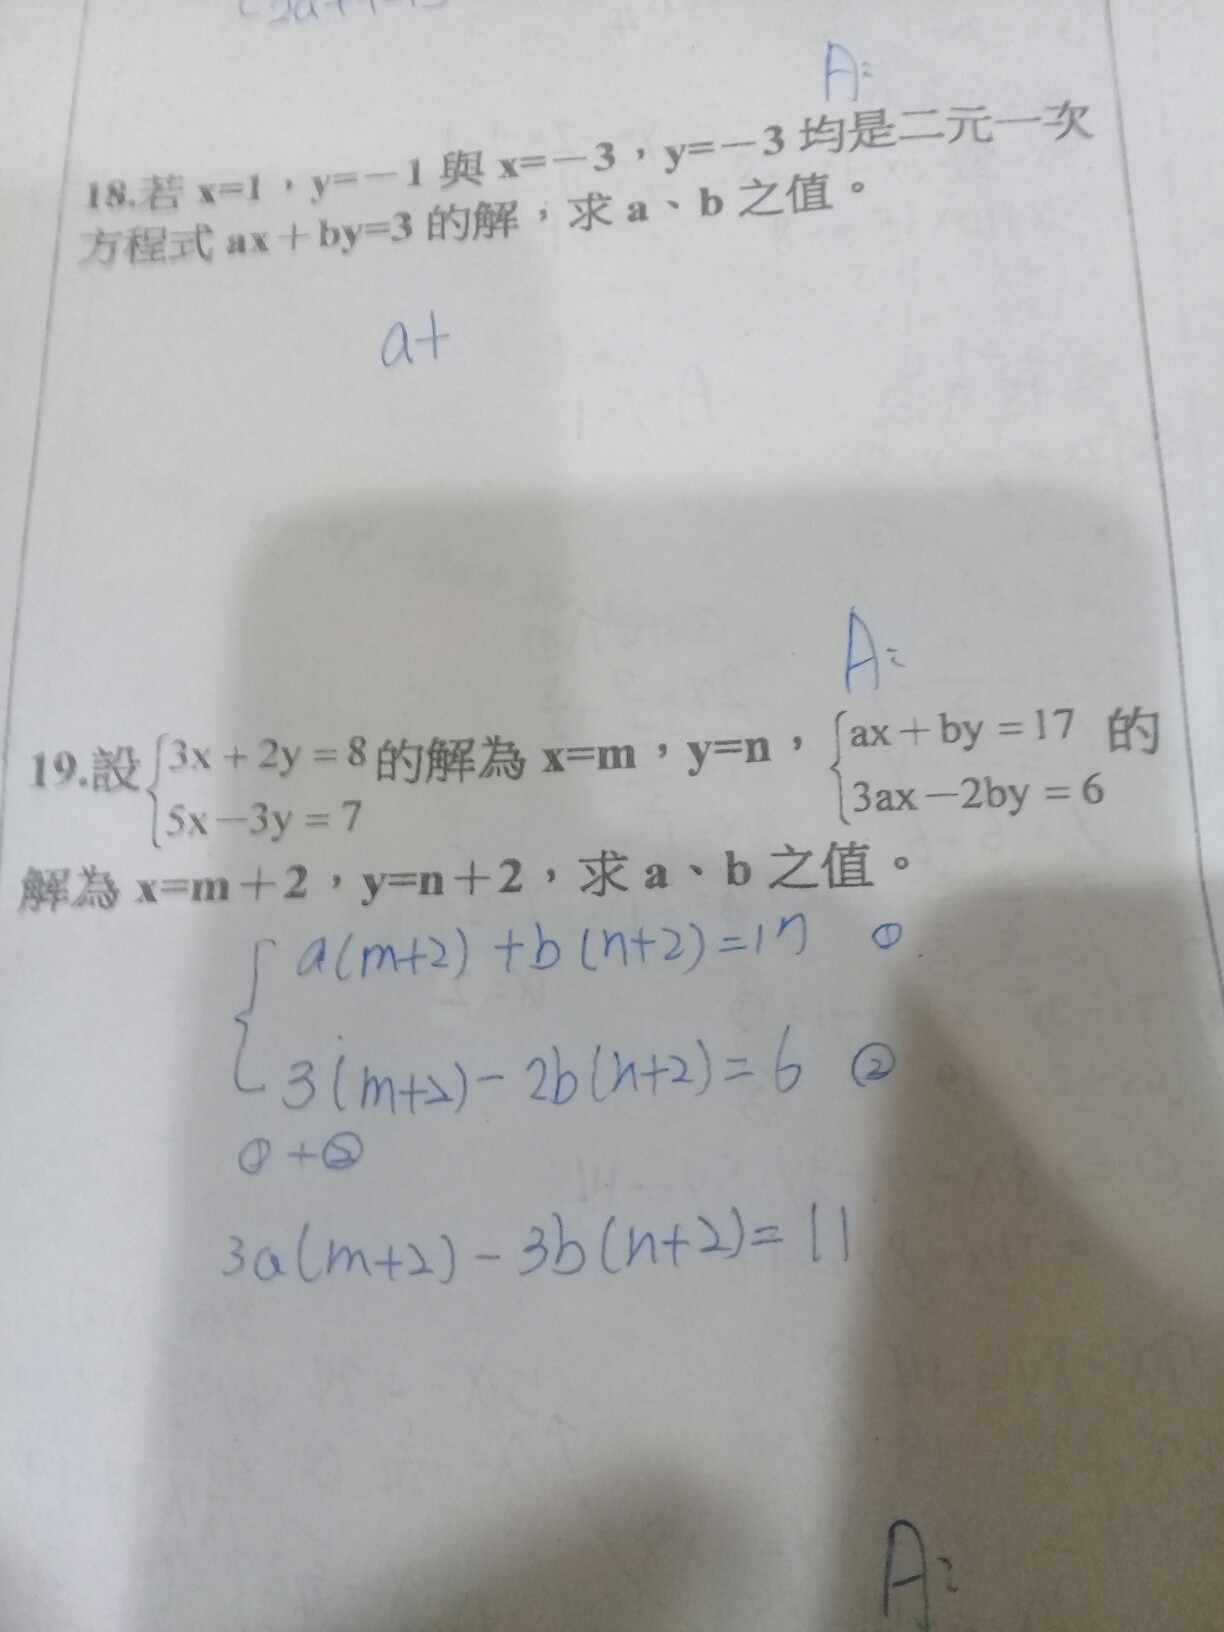 A:
18.若 x=1，y=－1 與 x=－3，y=－3 均是二元一次
方程式 ax＋by=3 的解，求 a、b 之值。
a+
A:
19.設{3x + 2y = 8 的解為 x=m，y=n，{ax＋by = 17 的
5x－3y = 7 3ax－2by = 6
解為 x=m＋2，y=n＋2，求 a、b 之值。
{ a(m+2) + b(n+2) = 17 ①
3(m+2) - 2b(n+2) = 6 ②
①+②
3a(m+2) - 3b(n+2) = 11
A: